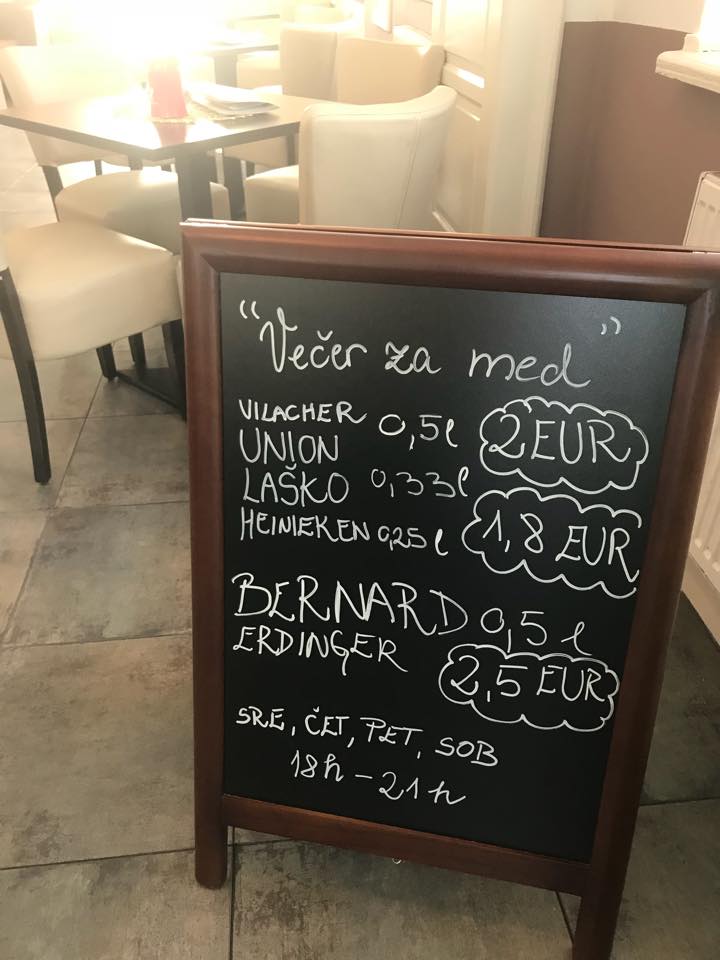 "Večer za med"
VILACHER 0,5l 2 EUR
UNION
LAŠKO 0,33l
HEINIEKEN 0,25 l 1,8 EUR
BERNARD 0,5 l
ERDINGER 2,5 EUR
SRE, ČET, PET, SOB
18h - 21h